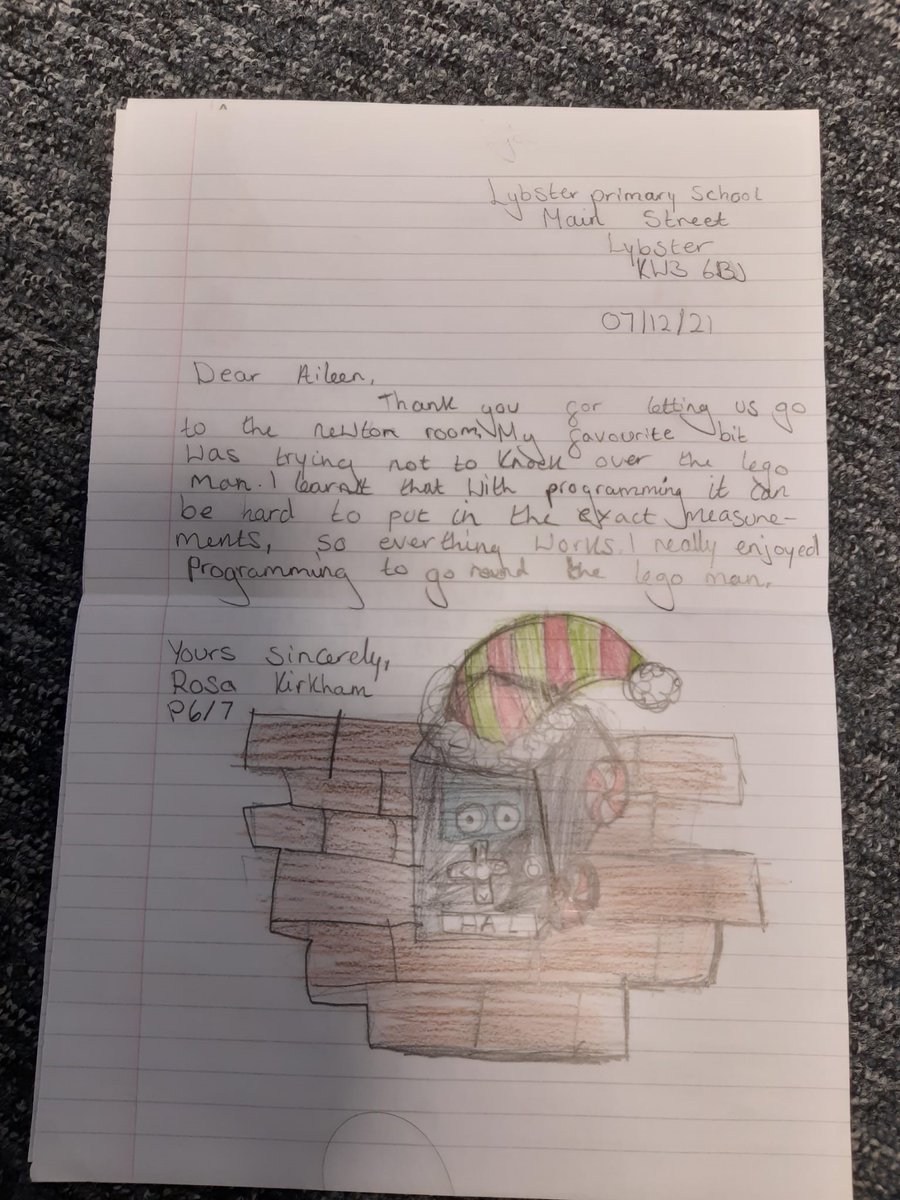 Lybster primary School
Main Street
Lybster
KW3 6BJ
07/12/21
Dear Aileen,
Thank you for letting us go
to the newton room. My favourite bit
was trying not to knock over the lego
man. I learnt that with programming it can
be hard to put in the exact measure-
ments, so everthing works. I really enjoyed
Programming to go round the lego man.
Yours Sincerely,
Rosa Kirkham
P6/7
HAL